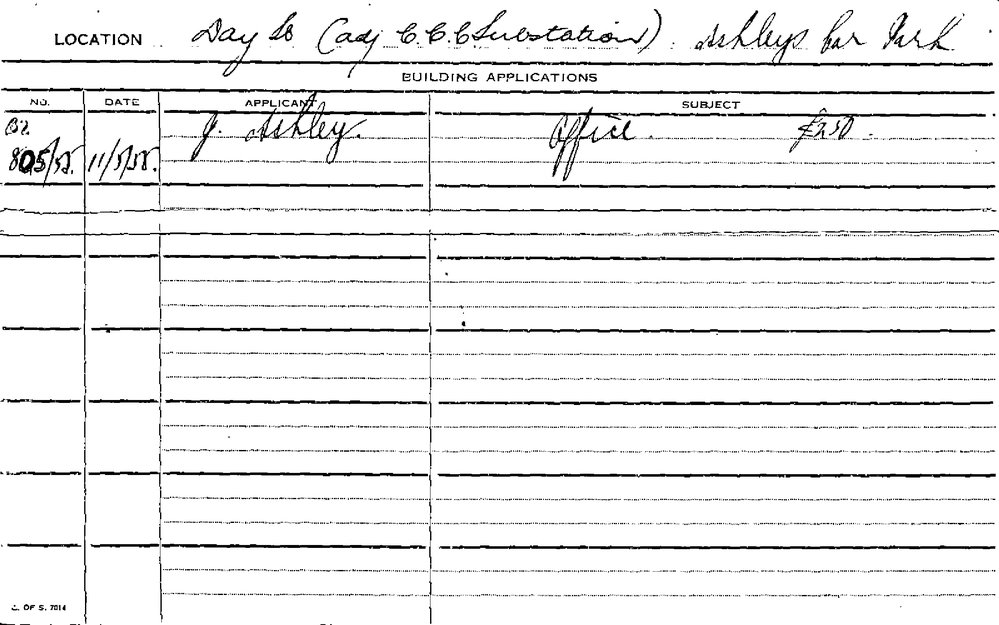 LOCATION Day St (adj C.C.C Substation) Ashleys Car Park
BUILDING APPLICATIONS
NO. DATE APPLICANT SUBJECT
J. Ashley. Office. £250.
805/55. 11/5/55.
C. OF S. 7014